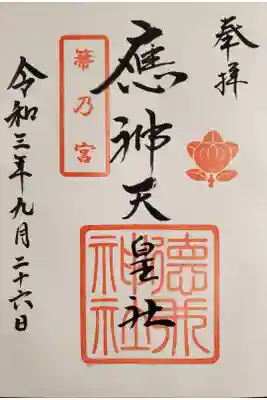 奉拝
應神天皇社
箒乃宮
德
神社
令和三年九月二十六日